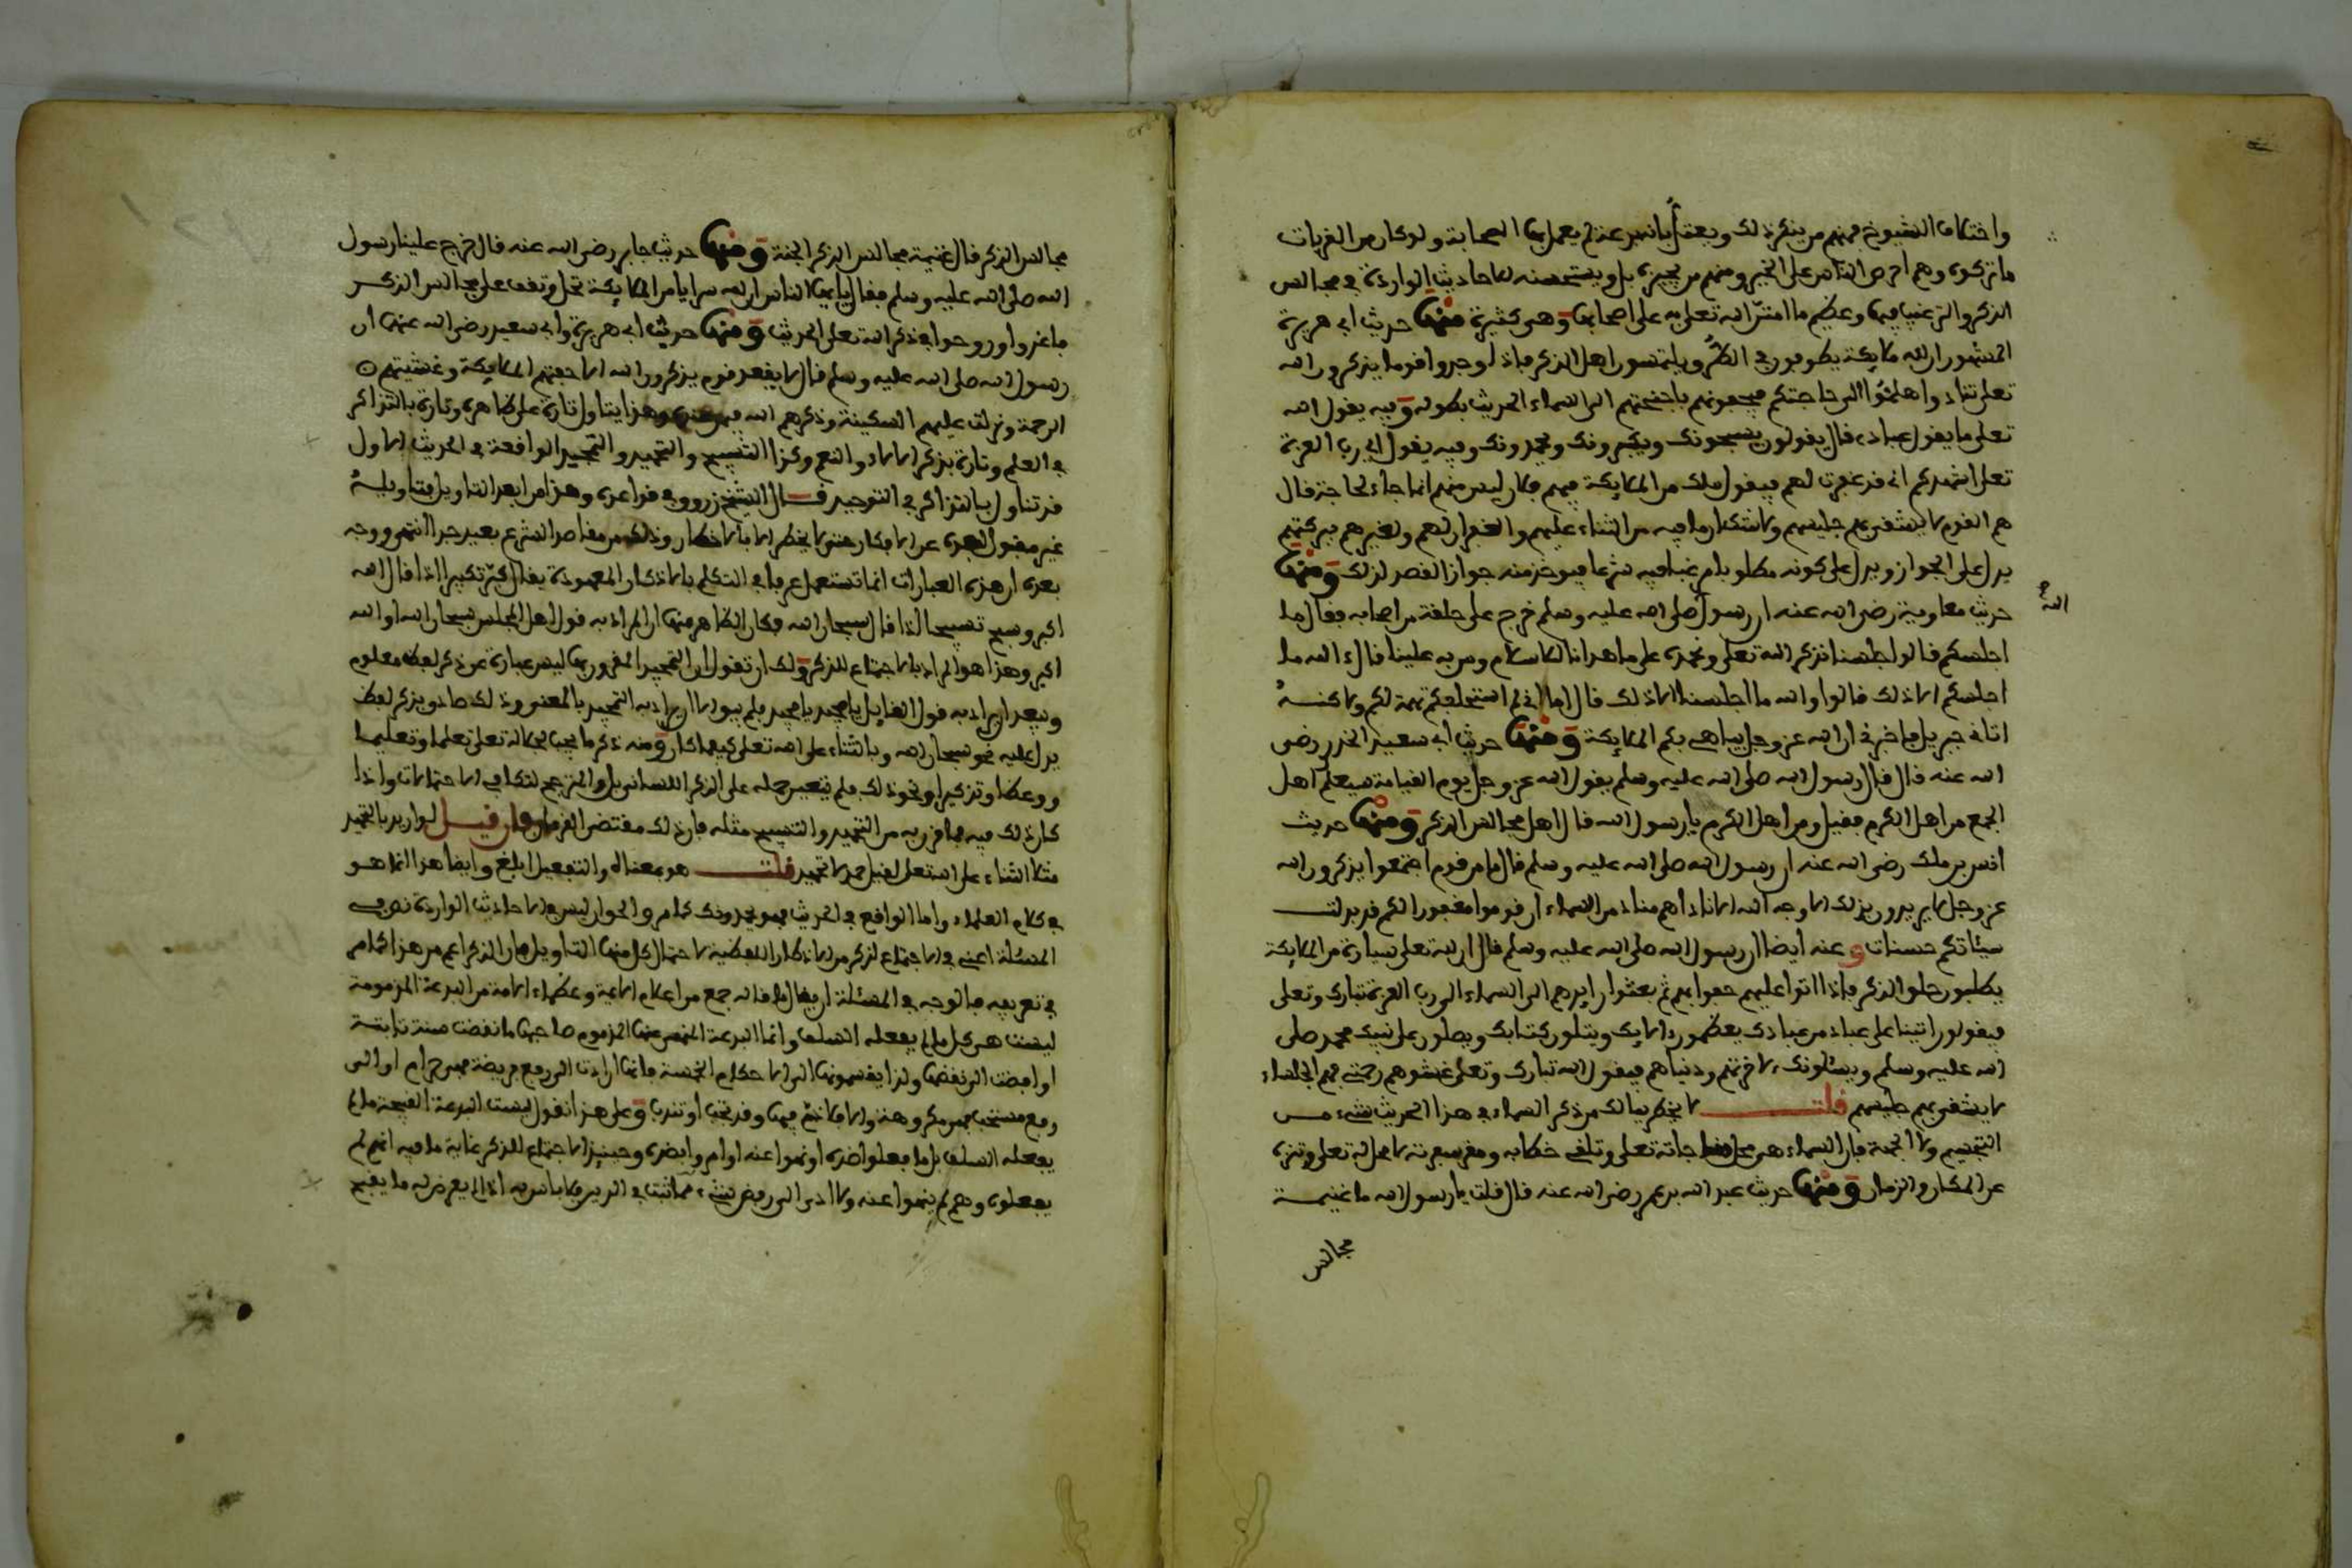 واختلاف الشيوخ فمنهم من ينكر ذلك ويعتل بانه بدعة لم يعمل بها الصحابة ولو كان من القربات
ما تركوه وهم احرص الناس على الخير ومنهم من يجيزه بل ويستحسنه للاحاديث الواردة في مجالس
الذكر والترغيب فيها وعظيم ما امتن الله تعلى به على اصحابها وهي كثيرة منها حديث ابي هريرة
المشهور ان لله ملايكة يطوفون في الطرق ويلتمسون اهل الذكر فاذا وجدوا قوما يذكرون الله
تعلى تنادوا هلموا الى حاجتكم فيحفونهم باجنحتهم الى السماء الحديث بطوله وفيه يقول الله
تعلى ما يقول عبادي قال يقولون يسبحونك ويكبرونك ويحمدونك وفيه يقول اي رب العزة
تعلى اشهدكم اني قد غفرت لهم فيقول ملك من الملايكة فيهم فلان ليس منهم انما جاء لحاجة قال
هم القوم لا يشقى بهم جليسهم ولا شك ان ما فيه من الثناء عليهم والغفران لهم ولغيرهم ببركتهم
يدل على الجواز ويدل على كونه مطلوبا مرغبا فيه شرعا فيوخذ منه جواز القصد لذلك ومنها
حديث معاوية رضي الله عنه ان رسول الله صلى الله عليه وسلم خرج على حلقة من اصحابه فقال ما
اجلسكم قالوا جلسنا نذكر الله تعلى ونحمده على ما هدانا للاسلام ومن به علينا قال ءالله ما
اجلسكم الا ذلك قالوا والله ما اجلسنا الا ذلك قال اما اني لم استحلفكم تهمة لكم ولاكنه
اتاني جبريل فاخبرني ان الله عز وجل يباهي بكم الملايكة ومنها حديث ابي سعيد الخدري رضي
الله عنه قال قال رسول الله صلى الله عليه وسلم يقول الله عز وجل يوم القيامة سيعلم اهل
الجمع من اهل الكرم فقيل ومن اهل الكرم يا رسول الله قال اهل مجالس الذكر ومنها حديث
انس بن ملك رضي الله عنه ان رسول الله صلى الله عليه وسلم قال ما من قوم اجتمعوا يذكرون الله
عز وجل لا يريدون بذلك الا وجه الله الا ناداهم مناد من السماء ان قوموا مغفورا لكم قد بدلت
سيئاتكم حسنات وعنه ايضا ان رسول الله صلى الله عليه وسلم قال ان لله تعلى سيارة من الملايكة
يطلبون حلق الذكر فاذا اتوا عليهم حفوا بهم ثم بعثوا رايدهم الى السماء الى رب العزة تبارك وتعلى
فيقولون اتينا على عباد من عبادك يعظمون ءالايك ويتلون كتابك ويصلون على نبيك محمد صلى
الله عليه وسلم ويسئلونك لاخرتهم ودنياهم فيقول الله تبارك وتعلى غشوهم رحمتي فهم الجلساء
لا يشقى بهم جليسهم قلت لا يخطر ببالك من ذكر السماء في هذا الحديث شيء من
التجسيم ولا الجهة فان السماء هي محل مناجاته تعلى وتلقي خطابه ومقر سفرته لا محل له تعلى وتنزه
عن المكان والزمان ومنها حديث عبد الله بن عمر رضي الله عنه قال قلت يا رسول الله ما غنيمة
مجالس
مجالس الذكر قال غنيمة مجالس الذكر الجنة ومنها حديث جابر رضي الله عنه قال خرج علينا رسول
الله صلى الله عليه وسلم فقال يا ايها الناس ان لله سرايا من الملايكة تحل وتقف على مجالس الذكر
فاغدوا وروحوا في ذكر الله تعلى الحديث ومنها حديث ابي هريرة وابي سعيد رضي الله عنهما ان
رسول الله صلى الله عليه وسلم قال لا يقعد قوم يذكرون الله الا حفتهم الملايكة وغشيتهم
الرحمة ونزلت عليهم السكينة وذكرهم الله فيمن عنده وهذا يتاول تارة على ظاهره وتارة بالتذاكر
في العلم وتارة بذكر الالاء والنعم وكذا التسبيح والتحميد والتمجيد الواقعة في الحديث الاول
قد تتاول بالتذاكر في التوحيد قال الشيخ زروق في قواعده وهذا من ابعد التاويل فتاويله
غير مقبول لبعده عن الافكار حتى لا يخطر الا بالاخطار وذلك من مقاصد الشرع بعيد جدا انتهى ووجه
بعده ان هذه العبارات انما تستعمل عرفا في التكلم بالاذكار المعهودة يقال كبر تكبيرا اذا قال الله
اكبر وسبح تسبيحا اذا قال سبحان الله فكان الظاهر منها ان المراد به قول اهل المجلس سبحان الله او الله
اكبر وهذا هو المراد بالاجتماع للذكر ولك ان تقول ان التمجيد المقرون بها ليس عبارة عن ذكر لفظ معلوم
ويبعد ان يراد به قول القايل يا مجيد يا مجيد فلم يبق الا ان يراد به التمجيد بالمعنى وذلك صادق بذكر لفظ
يدل عليه نحو سبحان الله وبالثناء على الله تعلى كيفما كان ومنه ذكر ما يجب لجلاله تعلى تعلما وتعليما
ووعظا وتذكيرا ونحو ذلك فلم يتعين حمله على الذكر اللساني بل والمرجح لتكافي الاحتمالات واذا
كان ذلك فيه فما قرن به من التحميد والتسبيح مثله فان ذلك مقتضى القران فان قيل لو اريد بالتحميد
مثلا الثناء على الله تعلى لقيل حمد لا تحميد قلت هو معناه والتفعيل ابلغ وايضا هذا انما هو
في كلام العلماء واما الواقع في الحديث فهو يحمدونك كما مر والجواب ليس في الاحاديث الواردة نص في
المسئلة اعني في الاجتماع لذكر من الاذكار اللفظية لاحتمال كل منها التاويل فان الذكر اعم من هذا كما مر
في تعريفه فالوجه في المسئلة ان يقال ما قاله جمع من اعلام الايمة وعظماء الامة من ان البدعة المذمومة
ليست هي كل ما لم يفعله السلف وانما البدعة المنهي عنها المذموم صاحبها ما نقضت سنة ثابتة
او افضت الى نقضها ولذا يقسمونها الى الاحكام الخمسة فانها ان ادت الى رفع فريضة فهي حرام او الى
رفع مستحب فهي مكروهة والا فلا اثم فيها وقد تجب او تندب وعلى هذا نقول ليست البدعة القبيحة ما لم
يفعله السلف بل ما فعلوا ضده او نهوا عنه او امروا بضده وحينئذ الاجتماع للذكر غاية ما فيه انهم لم
يفعلوه وهم لم ينهوا عنه ولا ادى الى رفض شيء مما ثبت في الدين فلا باس به اذا لم يعرض له ما يقبح